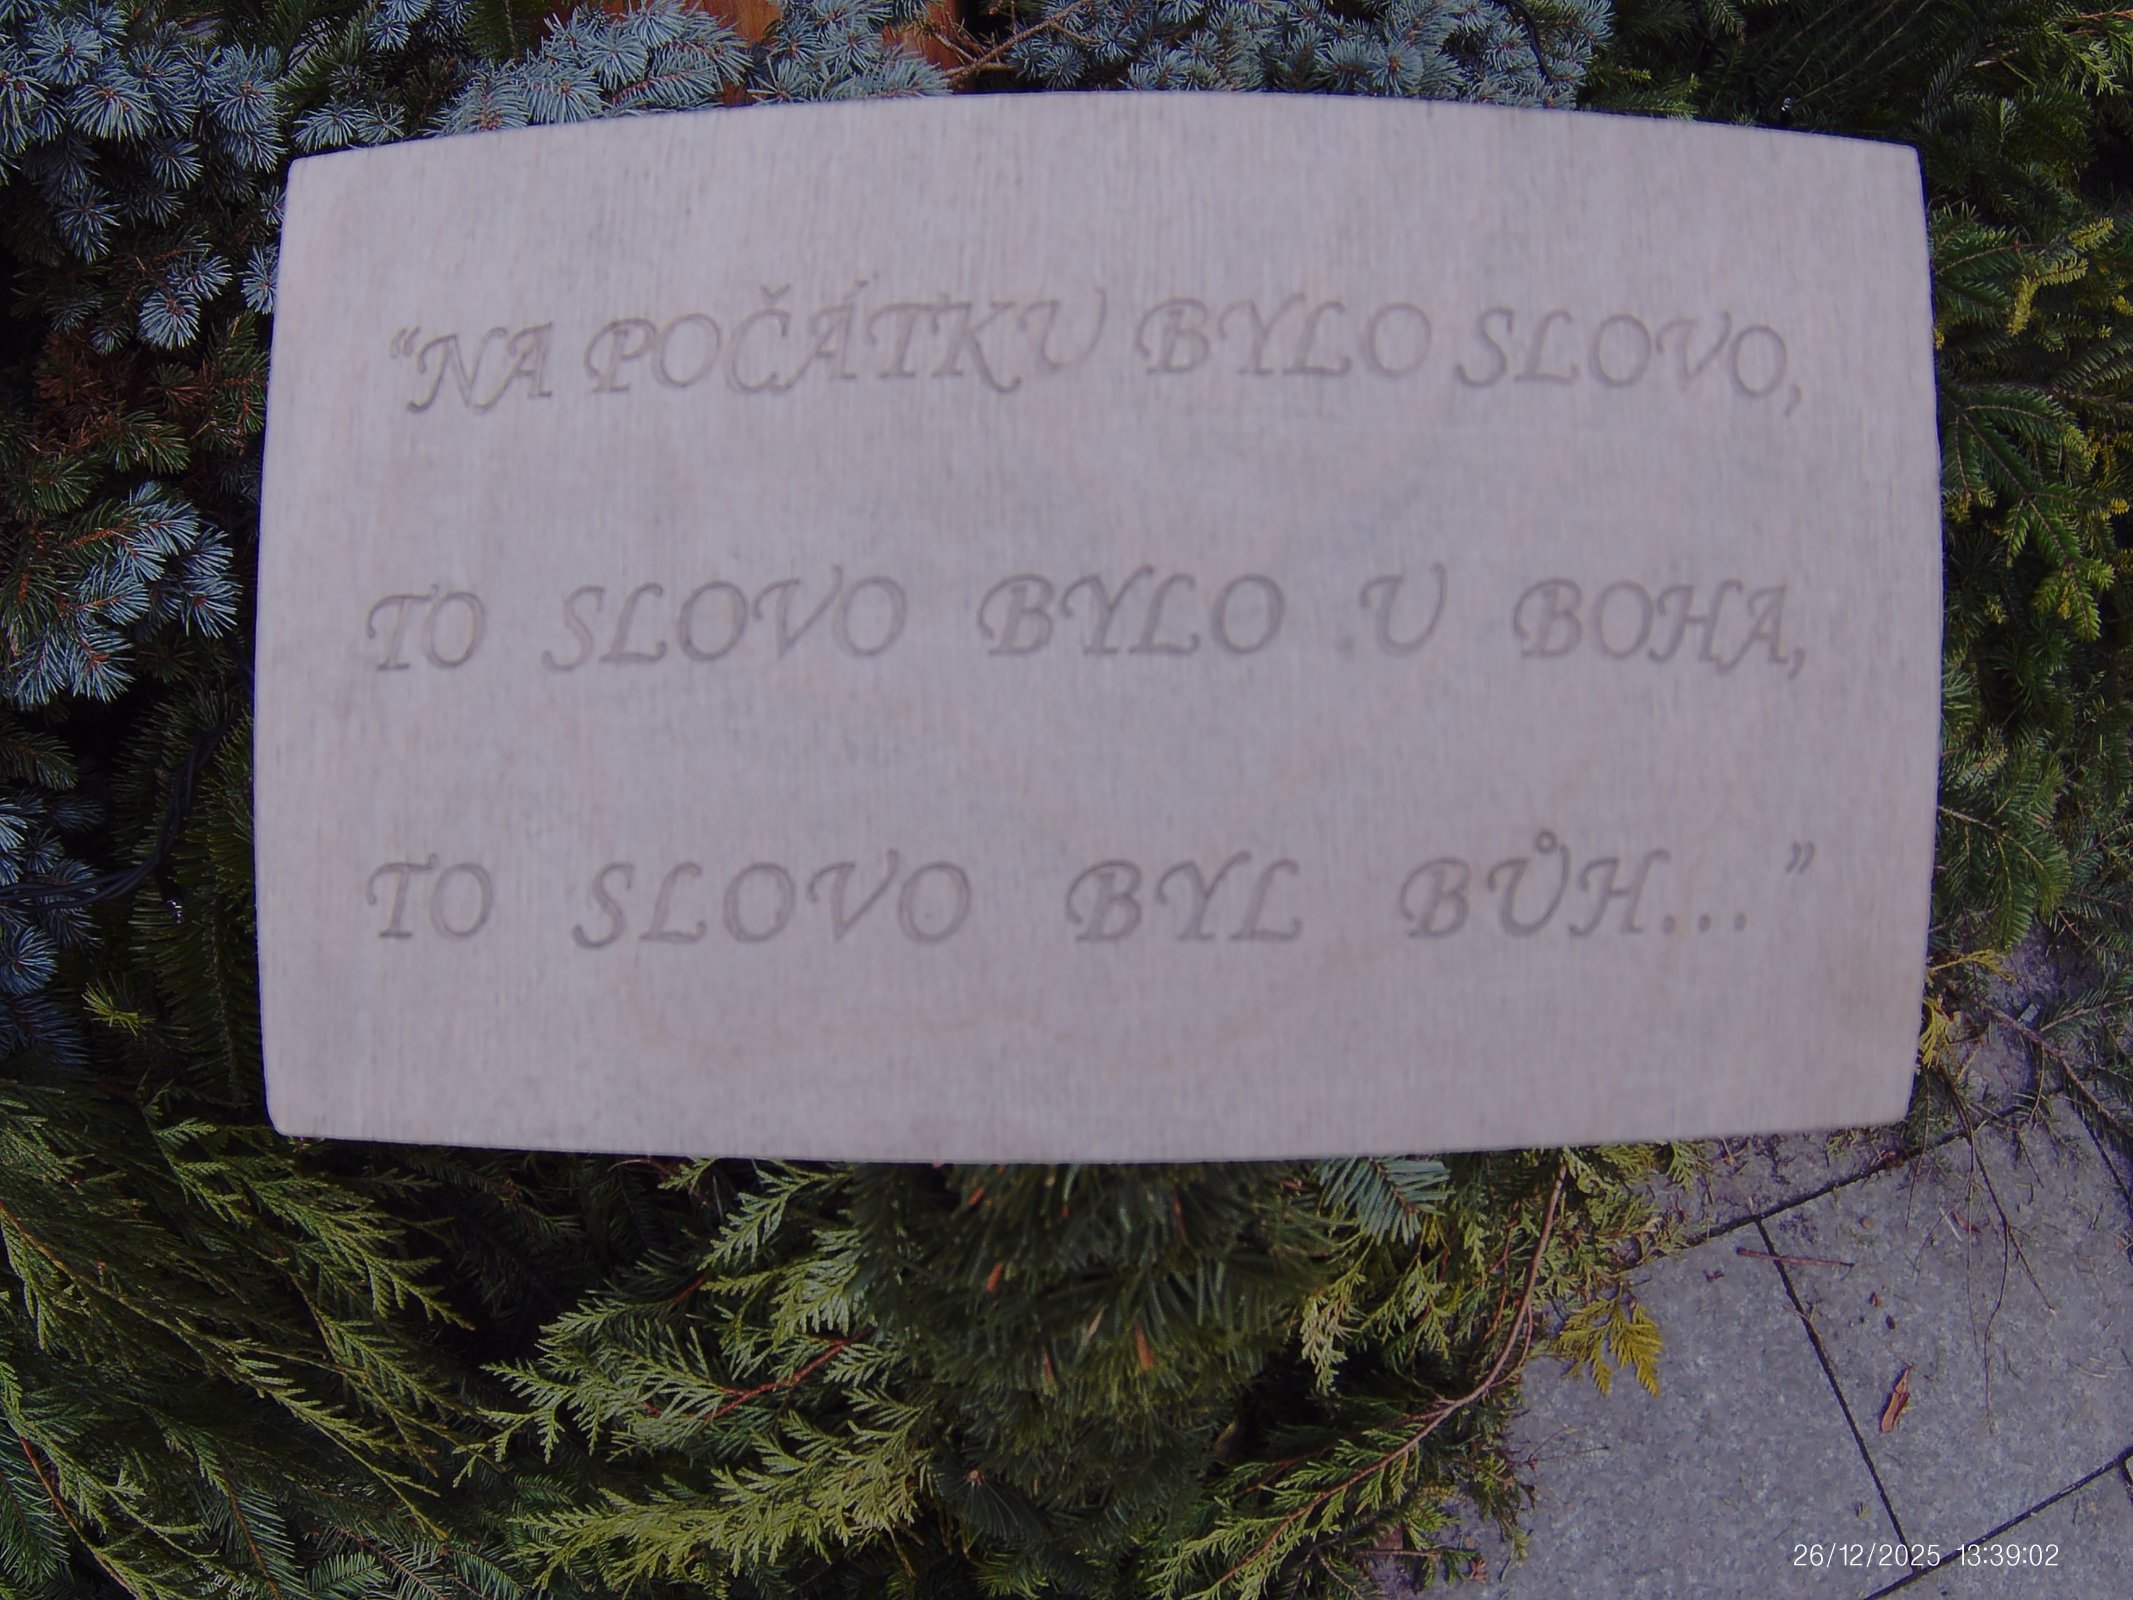 “NA POČÁTKU BYLO SLOVO,
TO SLOVO BYLO U BOHA,
TO SLOVO BYL BŮH...”
26/12/2025 13:39:02